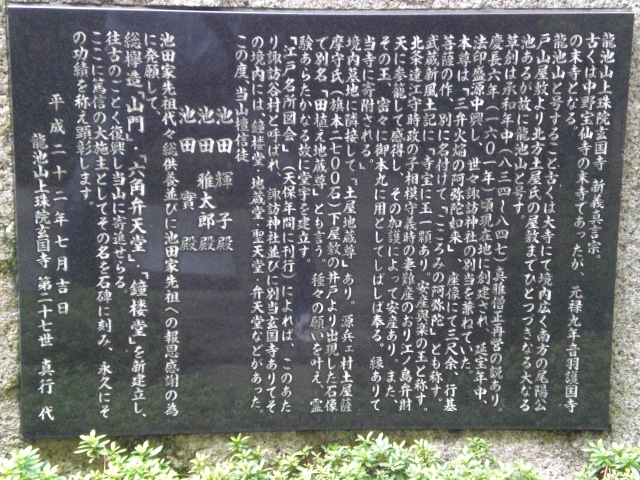 龍池山上珠院玄国寺 新義真言宗、
古くは中野宝仙寺の末寺であったが、元禄九年音羽護国寺
の末寺となる。
龍池山と号すること古くは大寺にて境内広く南方の尾陽公
戸山屋敷より北方土屋氏の屋敷までひとつづきなる大なる
池あるが故に龍池山と号す。
草創は承和年中(八三四~八四七)真雅僧正再営の説あり。
慶長六年(一六〇一年)頃現在地に創建され、延宝年中、
法印盛源中興し、世々諏訪神社の別当を兼ねていた。
本尊は「三弁火焔の阿弥陀如来」 座像にて三尺余、行基
菩薩の作、別に名付けて「こころみの阿弥陀」とも称す。
武蔵新風土記に「寺宝に玉一顆あり。安産與楽の玉と称す。
北条遠江守時政の子相模守義時の妻難産のおり江ノ島弁財
天に参籠して感得し、その加護によって安産あり。また、
その玉、密々に御本丸に用としてしばしば奉る、縁ありて
当寺に寄附される。
境内墓地に隣接して「土屋地蔵尊」あり。源兵ェ村土屋薩
摩守氏(旗本二七〇〇石)下屋敷の井戸より出現した石像
で別名「田植え地蔵尊」とも言う。種々の願いを叶え、霊
験あらたかなる故に堂宇を建立す。
「江戸名所図会」(天保年間に刊行)によれば、このあた
り諏訪谷村と呼ばれ、諏訪神社並びに別当玄国寺ありてそ
の境内には、鐘楼堂・地蔵堂・聖天堂・弁天堂などがあった。
この度、当山檀信徒
池田 輝子殿
池田 雅太郎殿
池田 實殿
池田家先祖代々総供養並びに池田家先祖への報恩感謝の為
に発願して、
総欅造「山門」・「六角弁天堂」・「鐘楼堂」を新建立し、
往古のごとく復興し当山に寄進せらる。
ここに篤信の大施主としてその名を石碑に刻み、永久にそ
の功績を称え顕彰します。
平成二十二年七月吉日
龍池山上珠院玄国寺 第二十七世 真行 代